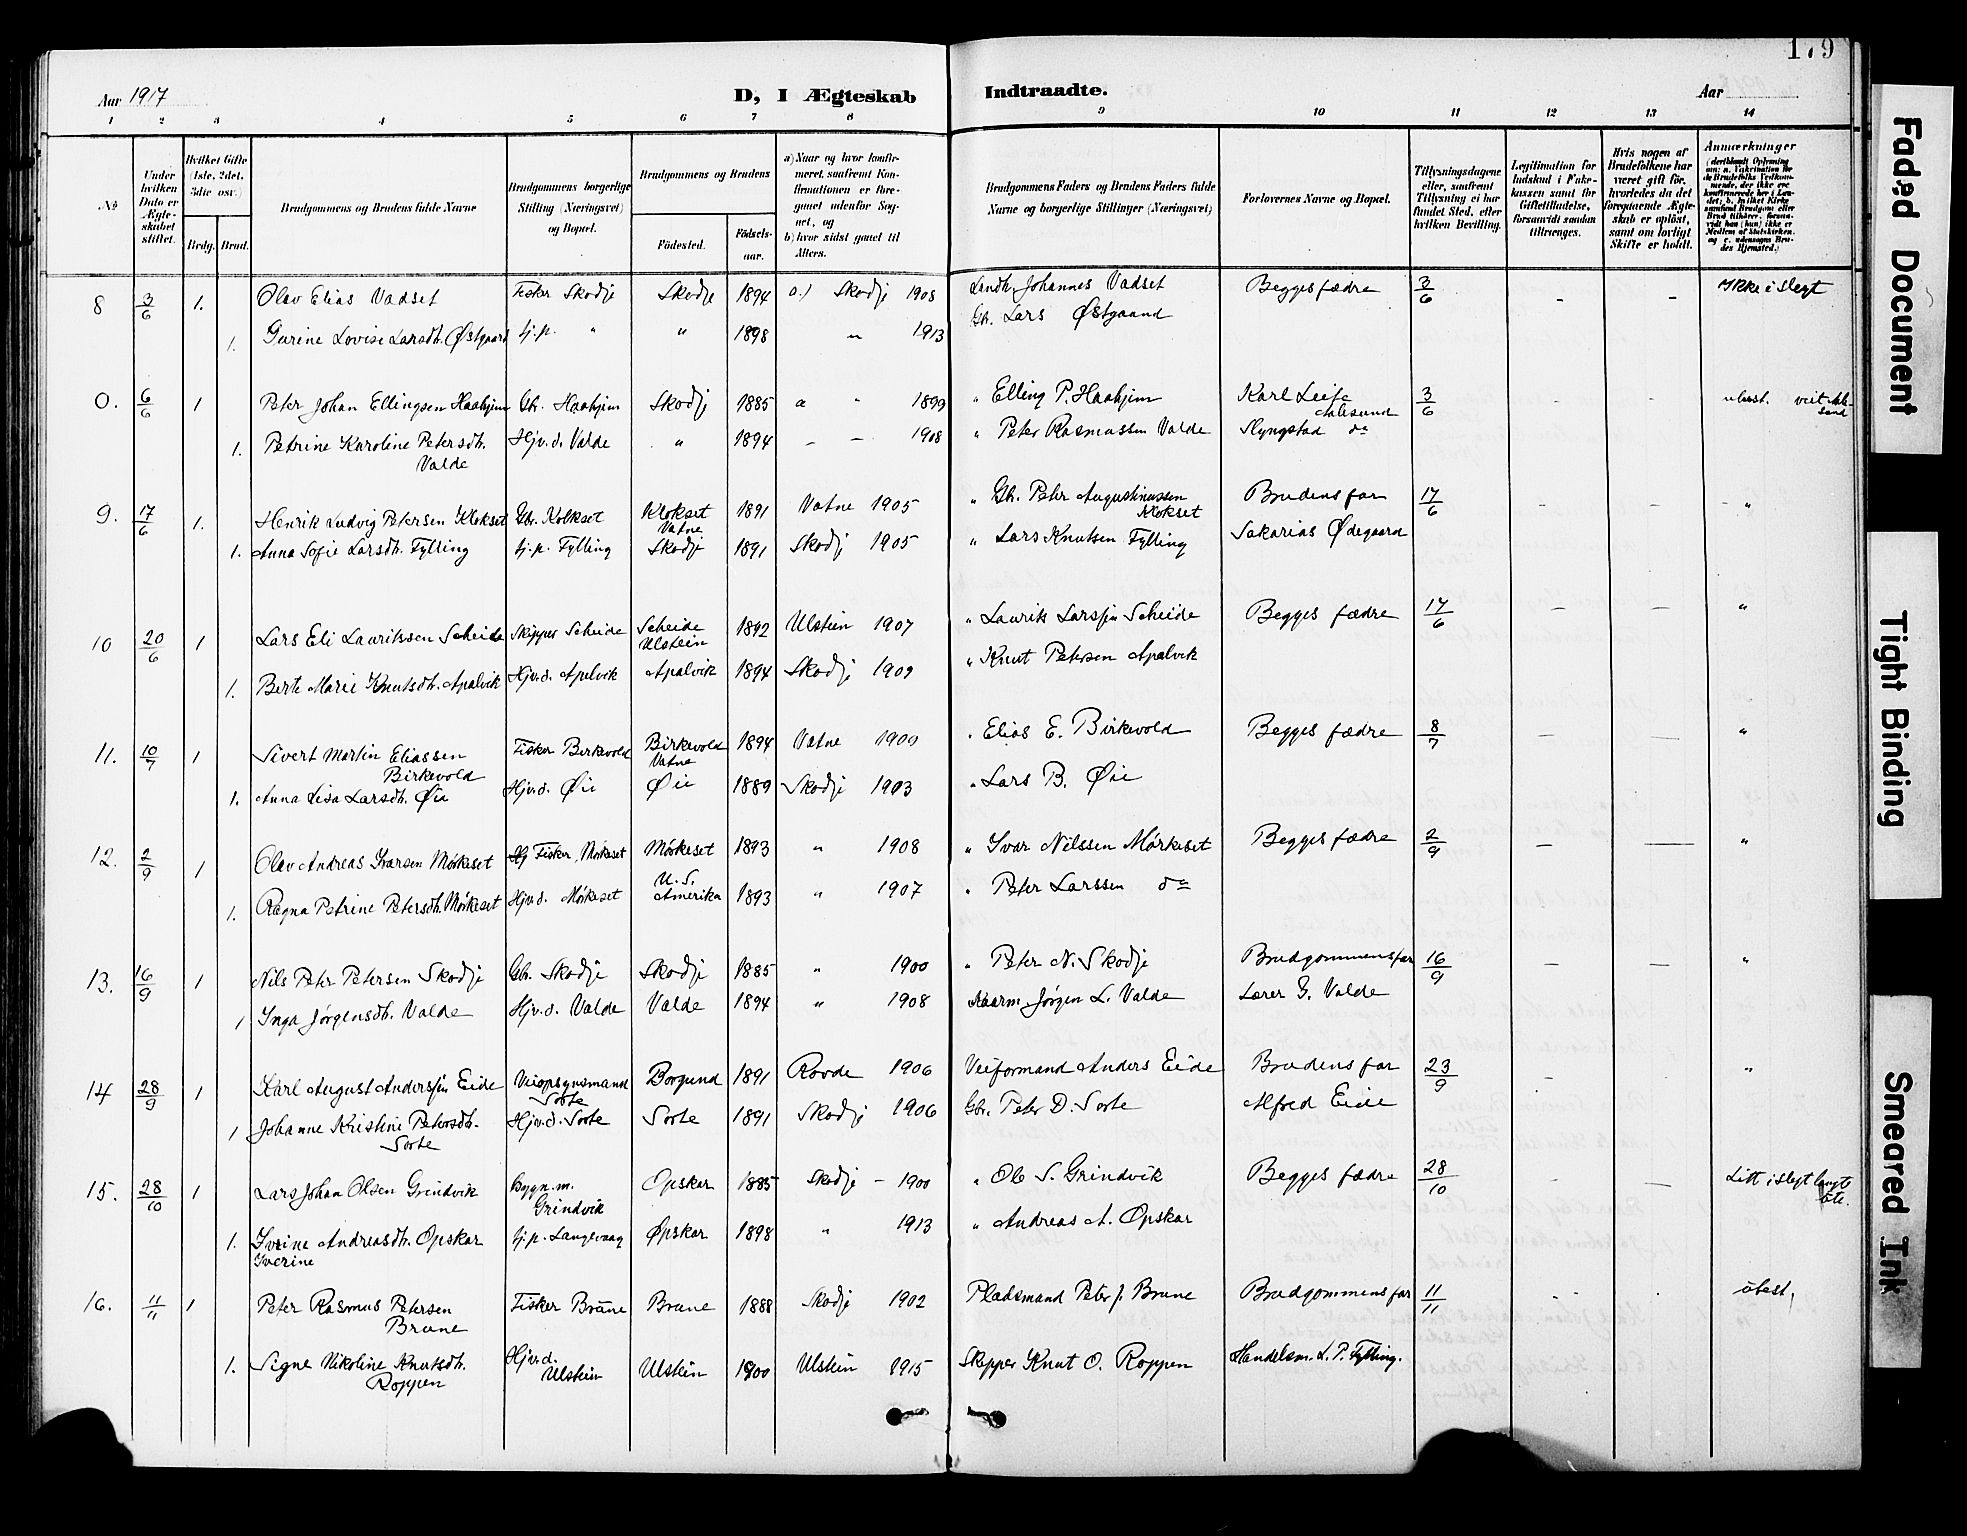 179
Aar 1917
D, I Ægteskab Indtraadte.
Aar
1 2 3 4 5 6 7 8 9 10 11 12 13 14
No
Under hvilken Dato er Ægteskabet stiftet.
Hvilket Gifte (1ste, 2det, 3die osv.)
Brdg. Brud.
Brudgommens og Brudens fulde Navne
Brudgommens borgerlige Stilling (Næringsvei) og Bopæl.
Brudgommens og Brudens
Fødested. Fødselsaar.
a) Naar og hvor konfirmeret, samfremt Konfirmationen er foregaaet udenfor Sognet, og
b) hvor sidst gaaet til Alters.
Brudgommens Faders og Brudens Faders fulde Navne og borgerlige Stillinger (Næringsvei)
Forlovernes Navne og Bopæl.
Tillysningsdagene eller, samfremt Tillysning ei har fundet Sted, efter hvilken Bevilling.
Legitimation for Indskud i Enkekassen samt for Giftetilladelse, forsaavidt saadan tiltrænges.
Hvis nogen af Brudefolkene har været gift før, hvorledes da det foregaaende Ægteskab er opløst, samt om lovligt Skifte er holdt.
Anmærkninger
8 3/6 1. Olav Elias Vadset Fisker Skodje Skodje 1894 a.) Skodje 1908 Landh. Johannes Vadset Begges fædre 3/6 - - Ikke i slegt
1. Gurine Lovise Larsdh. Østgaard tj.p. " " 1898 " 1913 Gb. Lars Østgaard
0. 6/6 1 Peter Johan Ellingsen Haahjem Gb. Haahjem Skodje 1885 a " 1899 " Elling P. Haahjem Karl Leite Aalesund 3/6 - - ubest. veit Aalesund
1. Petrine Karoline Petersdh. Valde Hjv.d. Valde " 1894 - - 1908 " Peter Rasmussen Valde Slyngstad do
9. 17/6 1. Henrik Ludvig Petersen Klokset Gbr. Kolkset Klokset Vatne 1891 Vatne 1905 " Gb. Peter Augustinussen Klokset Brudens far 17/6 - - "
1. Anna Sofie Larsdh. Fylling tj.p. Fylling Skodje 1891 Skodj 1905 " Lars Knutsen Fylling Sakarias Ødegaard
10 20/6 1 Lars Eli Lauritssen Scheide Skipper Scheide Scheide Ulstein 1892 Ulstein 1907 " Laurits Larssen Scheide Begges fædre 17/6 - - "
1. Berte Marie Knutsdh. Apalvik Hjv.d. Apalvik Apalvik 1894 Skodj 1909 " Knut Petersen Apalvik
11. 10/7 1 Sivert Martin Eliassen Birkevold Fisker Birkevold Birkevold Vatne 1894 Vatne 1909 " Elias E. Birkevold Begges fædre 8/7 - - "
1. Anna Lisa Larsdh. Øie Hjv.d. Øie Øie 1889 Skodje 1903 " Lars B. Øie
12. 2/9 1 Olav Andreas Ivarsen Mørkeset Fisker Mørkeset Mørkeset 1893 " 1908 " Ivar Nilssen Mørkeset Begges fædre 2/9 - - "
1. Ragna Petrine Petersdh. Mørkeset Hjv.d. Mørkeset U. S. Amerika 1893 " 1907 " Peter Larssen do
13. 16/9 1 Nils Peter Petersen Skodje Gb. Skodje Skodje 1885 " 1900 " Peter N. Skodje Brudgommens far 16/9 - - "
1 Inga Jørgensdh. Valde Hjv.d. Valde Valde 1894 " 1908 Jørgen L. Valde Lærer G. Valde
14 28/9 1 Karl August Anderssen Eide Veiopsynsmand Sorte Borgund 1891 Rovde 1906 Veiformand Anders Eide Brudens far 23/9 - "
1 Johanne Kristine Petersdh. Sorte Hjv.d. Sorte Sorte 1891 Skodje 1906 Gbr. Peter D. Sorte Alfred Eide
15. 28/10 1 Lars Johan Olsen Grindvik Bygn.m. Grindvik Opskar 1885 Skodje - 1900 " Ole S. Grindvik Begges fædre 28/10 - - Litt i slegt langt ute.
1. Ivrine Andreasdh. Opskar Iverine tj.p. Langevaag Opskar 1898 " 1913 " Andreas A. Opskar
16. 11/11 1 Peter Rasmus Petersen Brune Fisker Brune Brune 1888 Skodje 1902 Pladsmand Peter J. Brune Brudgommens far 11/11 - ubest.
1. Signe Nikoline Knutsdh. Roppen Hjv.d. Ulstein Ulstein 1900 Ulstein 1915 Skipper Knut O. Roppen Handelsm. L. P. Fylling.
Faded Document
Tight Binding
Smeared Ink